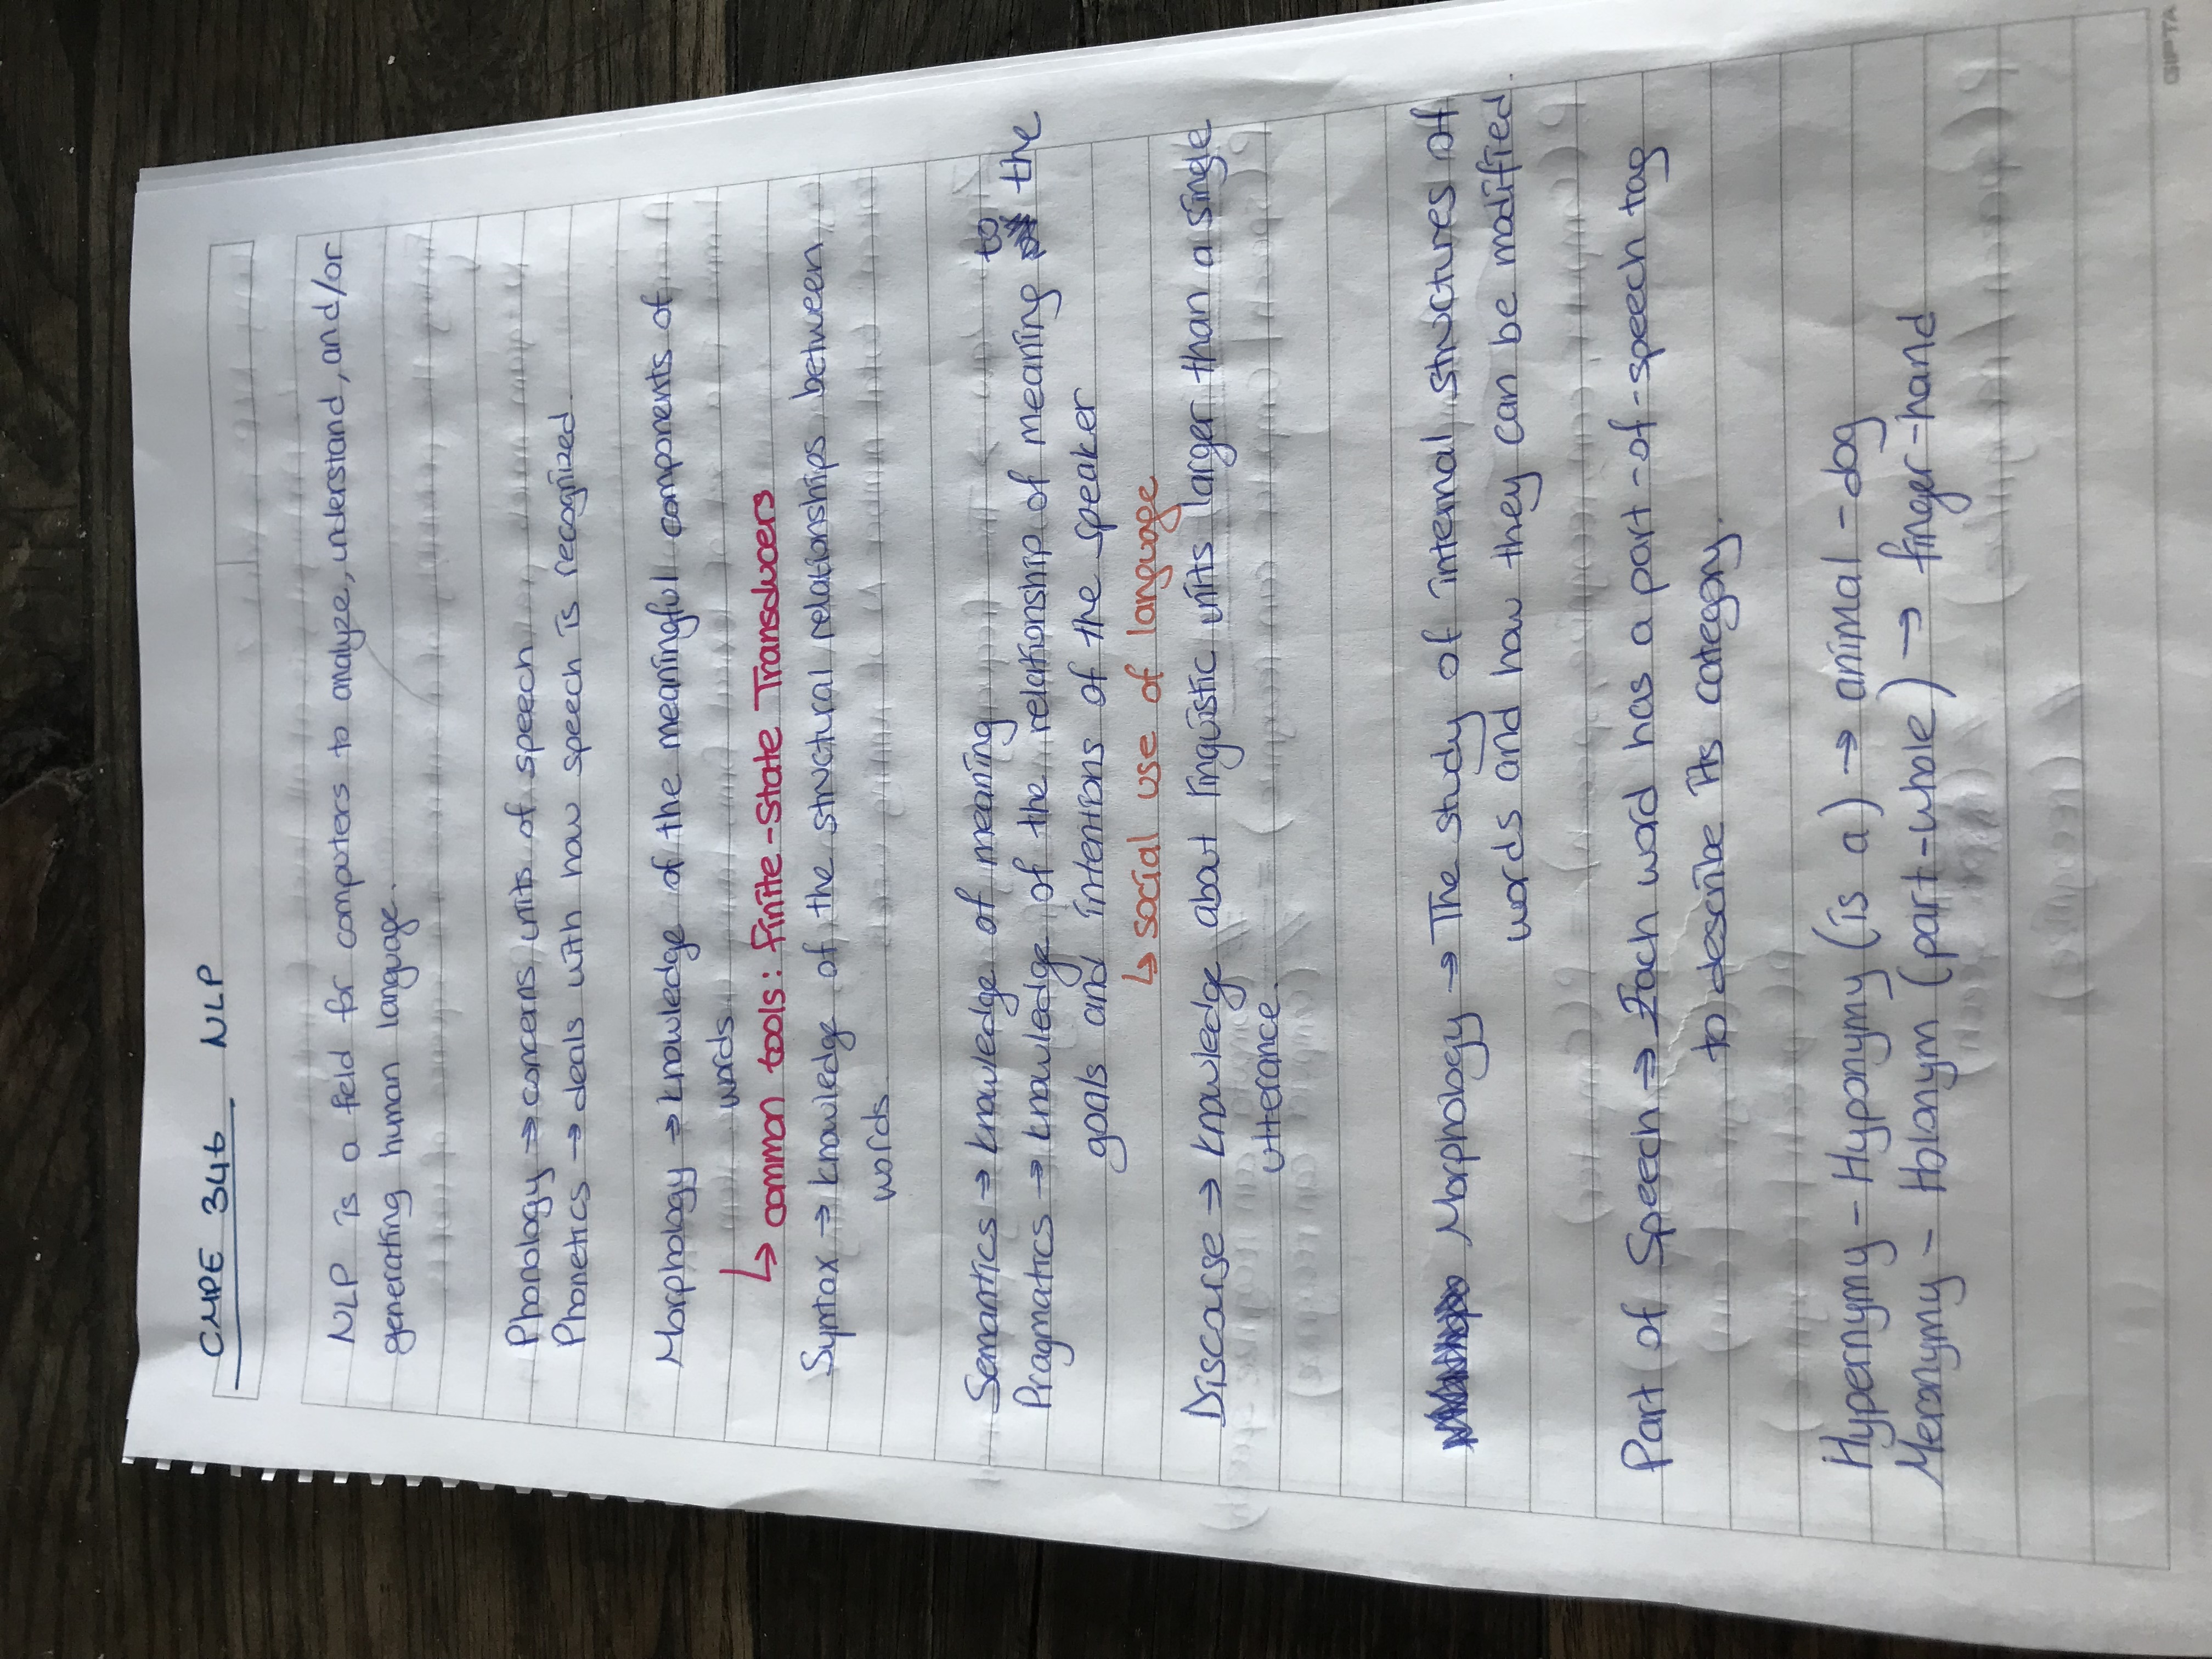 CMPE 346 NLP
NLP is a field for computers to analyze, understand, and/or
generating human language.
Phonology → concerns units of speech
Phonetics → deals with how speech is recognized.
Morphology → knowledge of the meaningful components of
words.
↳ common tools: Finite-State Transducers
Syntax → knowledge of the structural relationships between
words.
Semantics → knowledge of meaning
Pragmatics → knowledge of the relationship of meaning to the
goals and intentions of the speaker
↳ social use of language
Discourse → knowledge about linguistic units larger than a single
utterance.
Morphology → The study of internal structures of
words and how they can be modified.
Part of Speech → Each word has a part-of-speech tag
to describe its category.
Hypernymy - Hyponymy (is a) → animal - dog
Meronymy - Holonym (part-whole) → finger-hand
GIPTA